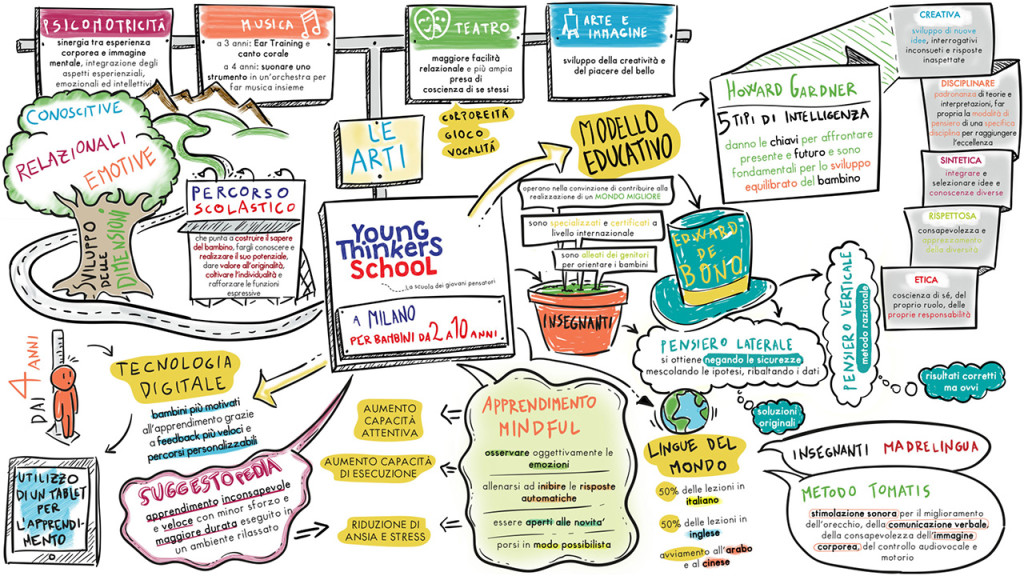 PSICOMOTRICITÁ
sinergia tra esperienza
corporea e immagine
mentale, integrazione degli
aspetti esperienziali,
emozionali ed intellettivi
MUSICA
a 3 anni: Ear Training e
canto corale
a 4 anni: suonare uno
strumento in un'orchestra per
far musica insieme
TEATRO
maggiore facilità
relazionale e più ampia
presa di
coscienza di se stessi
ARTE E
IMMAGINE
sviluppo della creatività e
del piacere del bello
CREATIVA
sviluppo di nuove
idee, interrogativi
inconsueti e risposte
inaspettate
DISCIPLINARE
padronanza di teorie e
interpretazioni, far
propria la modalità di
pensiero di una specifica
disciplina per raggiungere
l'eccellenza
SINTETICA
integrare e
selezionare idee e
conoscenze diverse
RISPETTOSA
consapevolezza e
apprezzamento
della diversità
ETICA
coscienza di sé, del
proprio ruolo, delle
proprie responsabilità
HOWARD GARDNER
5 TIPI DI INTELLIGENZA
danno le chiavi per affrontare
presente e futuro e sono
fondamentali per lo sviluppo
equilibrato del bambino
CONOSCITIVE
RELAZIONALI
EMOTIVE
SVILUPPO
DELLE
DIMENSIONI
PERCORSO
SCOLASTICO
che punta a costruire il sapere
del bambino, fargli conoscere e
realizzare il suo potenziale,
dare valore all'originalità,
coltivare l'individualità e
rafforzare le funzioni
espressive
LE
ARTI
CORPOREITÀ
GIOCO
VOCALITÀ
MODELLO
EDUCATIVO
Young
Thinkers
School
La scuola dei giovani pensatori
A MILANO
PER BAMBINI DA 2 A 10 ANNI
operano nella convinzione di contribuire alla
realizzazione di un MONDO MIGLIORE
sono specializzati e certificati a
livello internazionale
sono alleati dei genitori
per orientare i bambini
INSEGNANTI
EDWARD
DE
BONO
PENSIERO LATERALE
si ottiene negando le sicurezze
mescolando le ipotesi, ribaltando i dati
soluzioni
originali
PENSIERO VERTICALE
metodo razionale
risultati corretti
ma ovvi
DAI 4 ANNI
TECNOLOGIA
DIGITALE
bambini più motivati
all'apprendimento grazie
a feedback più veloci e
percorsi personalizzabili
UTILIZZO
DI UN TABLET
PER
L'APPRENDI-
MENTO
SUGGESTOPEDIA
apprendimento inconsapevole
e veloce con minor sforzo e
maggiore durata eseguito in
un ambiente rilassato
AUMENTO
CAPACITÀ
ATTENTIVA
AUMENTO CAPACITÀ
DI ESECUZIONE
RIDUZIONE DI
ANSIA E STRESS
APPRENDIMENTO
MINDFUL
osservare oggettivamente le
emozioni
allenarsi ad inibire le risposte
automatiche
essere aperti alle novita'
porsi in modo possibilista
LINGUE DEL
MONDO
50% delle lezioni in
italiano
50% delle lezioni in
inglese
avviamento all'arabo
e al cinese
INSEGNANTI MADRELINGUA
METODO TOMATIS
stimolazione sonora per il miglioramento
dell'orecchio, della comunicazione verbale,
della consapevolezza dell'immagine
corporea, del controllo audiovocale e
motorio